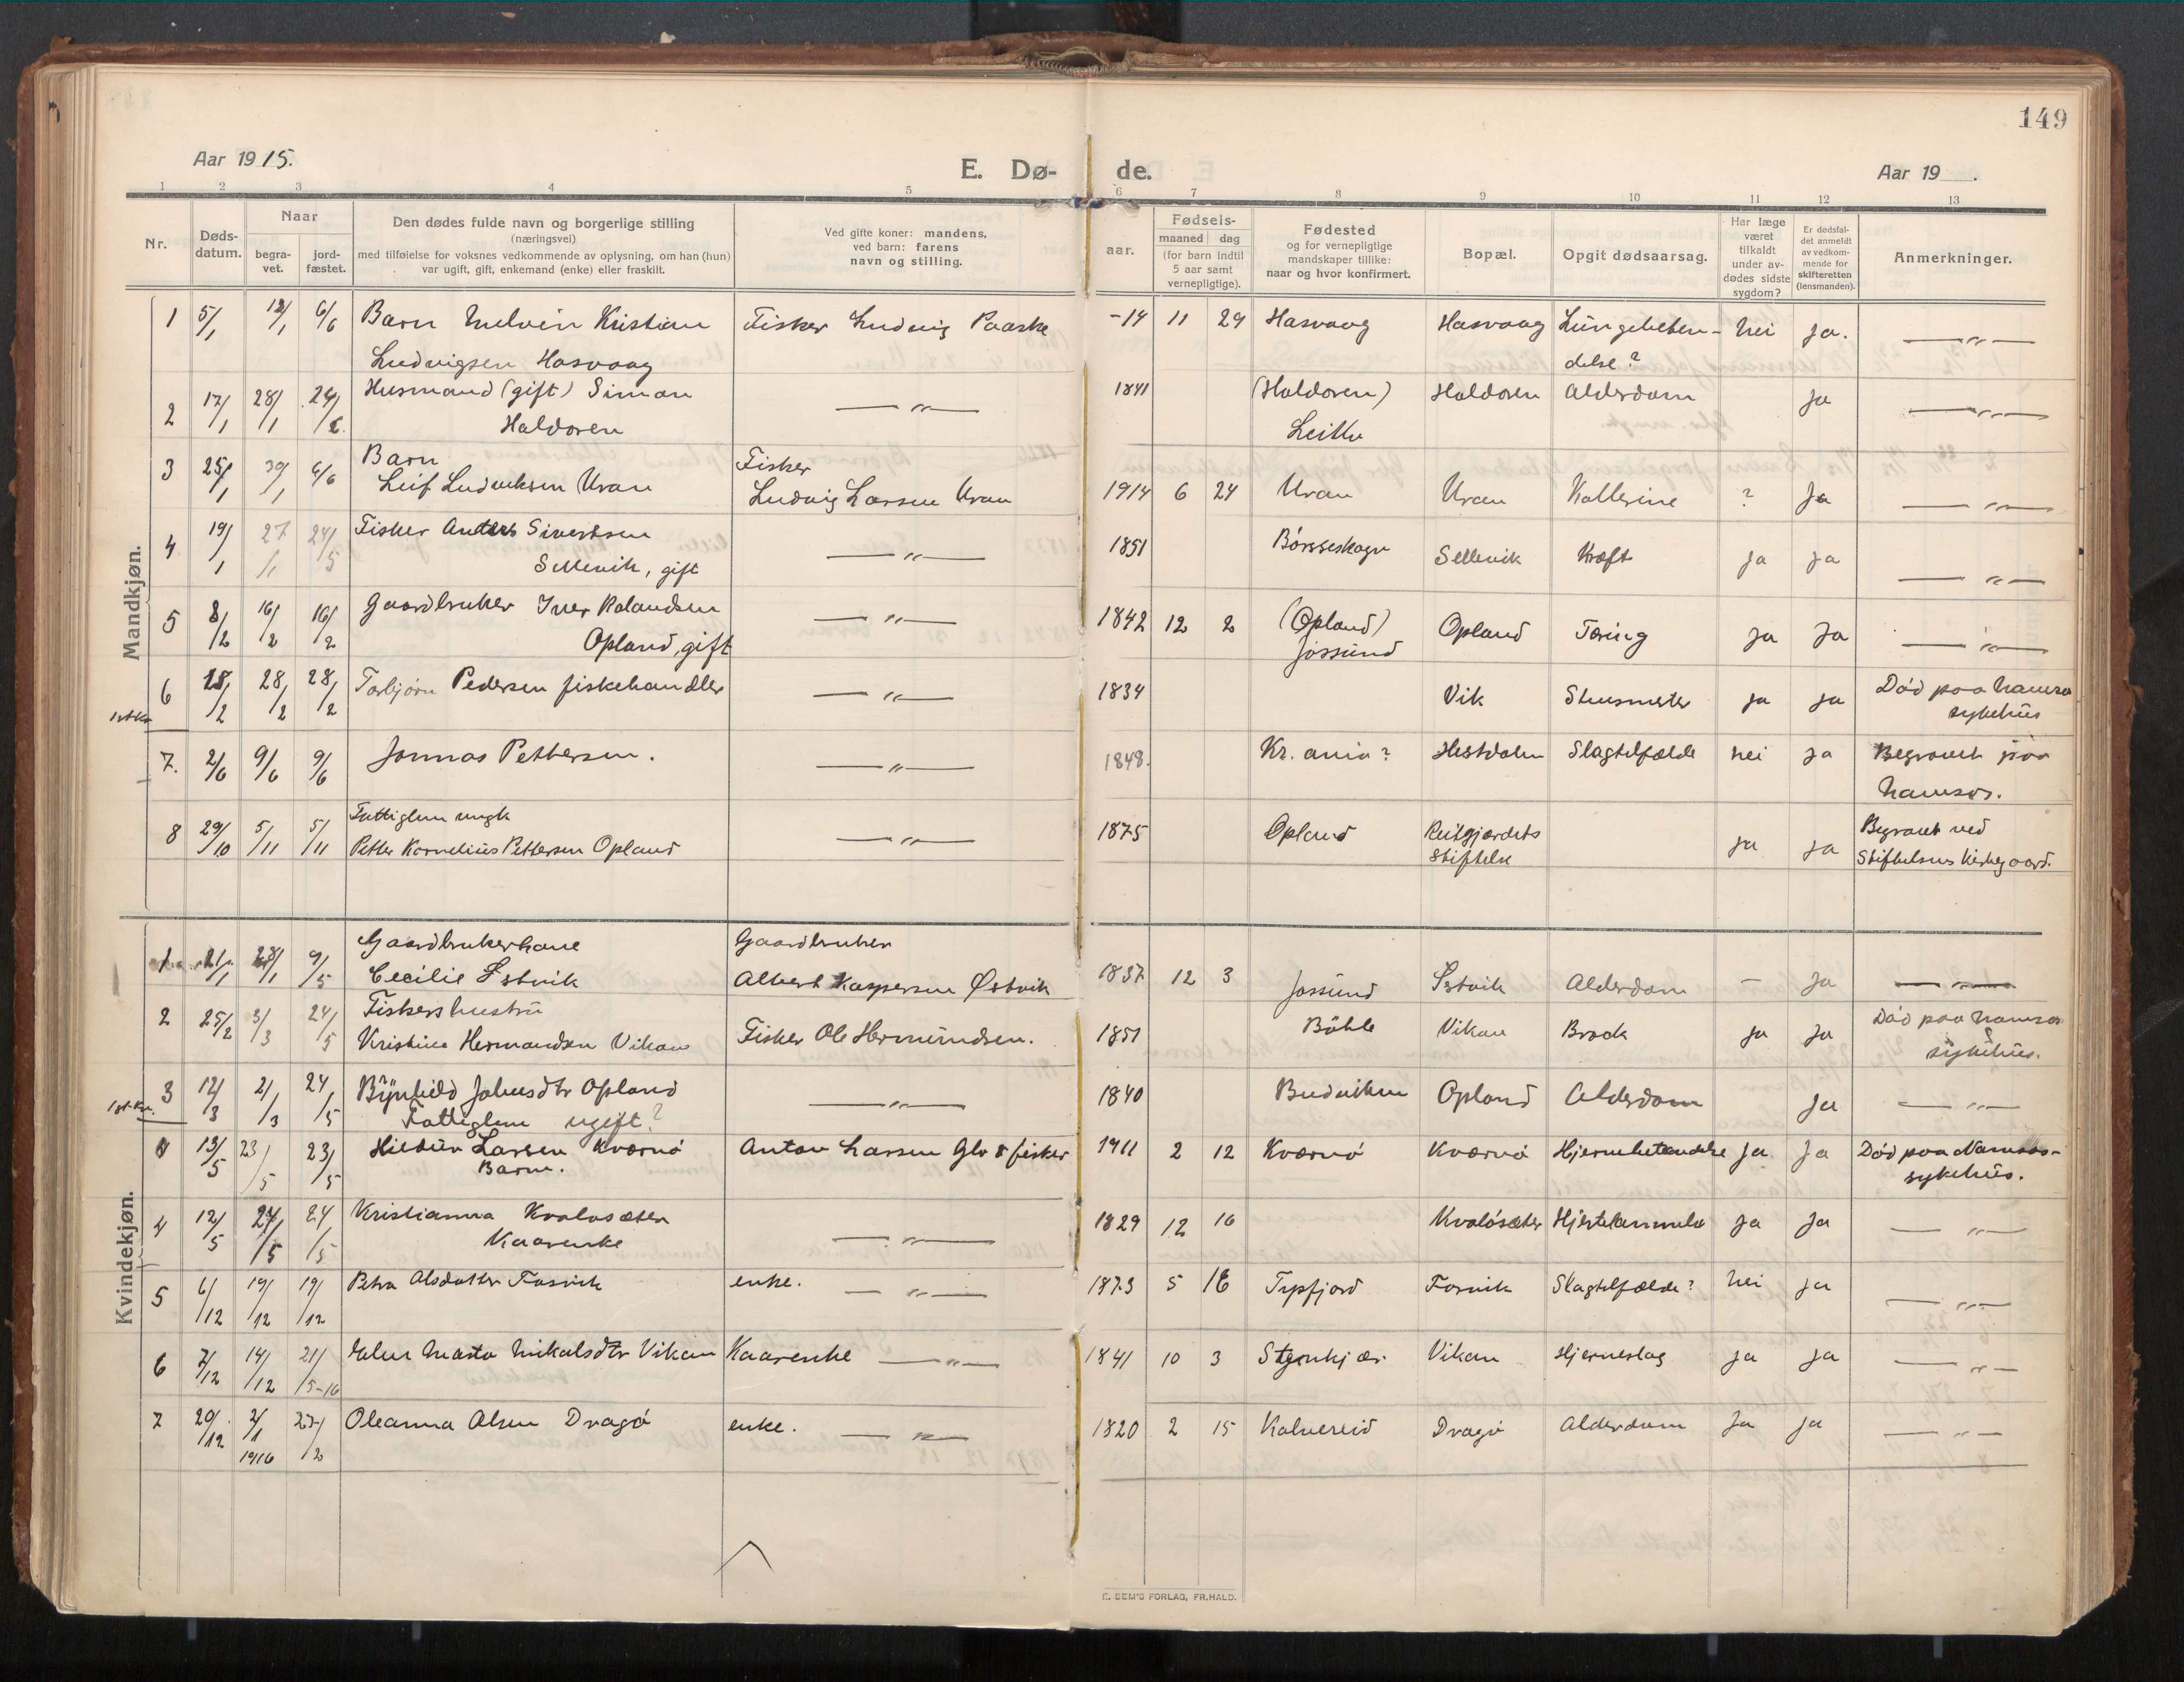 149
Aar 1915.
E. Dø-
de.
Aar 19 .
1 2 3 4 5 6 7 8 9 10 11 12 13
Nr.
Døds-
datum.
Naar
begra-
vet.
jord-
fæstet.
Den dødes fulde navn og borgerlige stilling
(næringsvei)
med tilføielse for voksnes vedkommende av oplysning, om han (hun)
var ugift, gift, enkemand (enke) eller fraskilt.
Ved gifte koner: mandens,
ved barn: farens
navn og stilling.
aar.
Fødsels-
maaned dag
(for barn indtil
5 aar samt
vernepligtige).
Fødested
og for vernepligtige
mandskaper tillike:
naar og hvor konfirmert.
Bopæl.
Opgit dødsaarsag.
Har læge
været
tilkaldt
under av-
dødes sidste
sygdom?
Er dødsfal-
det anmeldt
av vedkom-
mende for
skifteretten
(lensmanden).
Anmerkninger.
Mandkjøn.
1 5/1 12/1 6/6 Barn Melvin Kristian Fisker Ludvig Paaske -14 11 29 Hasvaag Hasvaag Lungebeten- nei ja. — " —
Ludvigsen Hasvaag delse?
2 17/1 28/1 Husmand (gift) Simon — " — 1841 (Haldoren) Haldoren Alderdom ja — " —
Haldoren Leitlo
3 25/1 30/1 6/6 Barn Fisker
Leif Ludviksen Uran Ludvig Larsen Uran 1914 6 24 Uran Uran Kollerine ? Ja — " —
4 19/1 27/1 24/5 Fisker Anders Sivertsen — " — 1851 Børseskogn Sellevik Kræft ja ja — " —
Sellevik, gift
5 8/2 16/2 16/2 Gaardbruker Iver Rolandsen — " — 1842 12 2 (Opland) Opland Tæring ja ja — " —
Opland, gift Jøssund
6 28/2 28/2 Torbjørn Pedersen fiskehandler — " — 1834 Vik ja ja Død paa Namsos
sykehus
7. 2/6 9/6 9/6 Jonnas Pettersen. — " — 1848. Kr. ania? Hestdalen Slagtilfælde nei ja Begravet paa
Namsos.
8 29/10 5/11 5/11 Fattiglem ungk — " — 1875 Opland Reitgjærdets ja ja Begravet ved
Petter Kornelius Pettersen Opland Stiftelse Stiftelsens kirkegaard.
Kvindekjøn.
1 21/1 28/1 9/5 Gaardbrukerkone Gaardbruker
Cecilie Østvik Albert Kaspersen Østvik 1837 12 3 Jøssund Østvik Alderdom – ja — " —
2 25/2 3/3 24/5 Fiskershustru
Kristine Hermandsen Vikan Fisker Ole Hermundsen. 1851 Bøhle Vikan Brock ja ja Død paa Namsos
sykehus.
3 12/3 21/3 24/5 Brynhild Johnsdtr Opland — " — 1840 Budviken Opland Alderdom ja — " —
Fattiglem ugift?
13/5 23/5 23/5 Larsen Kværnø Anton Larsen Gbr & fisker 1911 2 12 Kværnø Kværnø Hjernebetændelse ja ja Død paa Namsos-
Barn. sykehus.
4 12/5 24/5 24/5 Kristianna Kvaløsæter — " — 1829 12 16 Kvaløsæter Hjertelammelse ja ja — " —
Kaarenke
5 6/12 19/12 19/12 Petra Olsdatter Fosvik enke. — " — 1873 5 16 Typfjord Forvik Slagtilfælde? nei ja — " —
6 7/12 14/12 21/5-16 Marta Mikalsdtr Vikan Kaarenke — " — 1841 10 3 Stenkjær Vikan Hjerneslag ja ja — " —
7 20/12 2/1 1916 27/2 Oleanna Olsen Dragø enke. — " — 1820 2 15 Kalvereid Dragø Alderdom ja ja — " —
E. SEM'S FORLAG, FR.HALD.